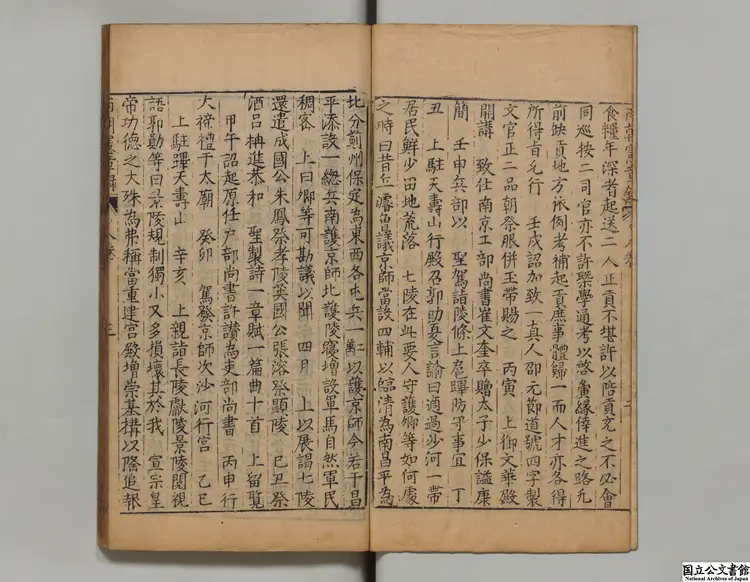 食糧年深者起送二人正貢不堪許以陪貢充之不必會
同巡按二司官亦不許槩學通考以啓夤緣倖進之路凢
前缺貢地方依例考補起貢庶事體歸一而人才亦各得
所得㫖允行　壬戌詔加致一真人邵元節道號四字製
文官正二品朝祭服併玉帶賜之　丙寅　上御文華殿
開講　致仕南京工部尚書崔文奎卒贈太子少保諡康
簡　壬申兵部以　聖駕詣陵條上扈蹕防守事宜　丁
丑　上駐天壽山行殿召郭勛夏言諭曰適過沙河一帶
居民鮮少田地荒落　七陵在此要人守護卿等如何處
之時曰昔仁濬議京師當設四輔以臨清為南昌平為
北分薊州保定為東西各屯兵一二萬以護京師今若于昌
平添設一總兵南護京師北護陵寢增設軍馬自然軍民
稠密　上曰卿等可勘議以聞　四月　上以展謁七陵
還遣成國公朱鳳祭孝陵英國公張溶祭顯陵　己丑祭
酒吕柟進恭和　聖製詩一章賦一篇曲十首　上留覽
甲午詔起原任户部尚書許讚為吏部尚書　丙申行
大禘禮于太廟　癸卯　駕發京師次沙河行宫　乙巳
上駐蹕天壽山　辛亥　上親詣長陵獻陵景陵閱視
語郭勛等曰景陵規制獨小又多損壞其於我　宣宗皇
帝功德之大殊為弗稱當重建宫殿增崇基構以隆追報
国立公文書館
National Archives of Japan